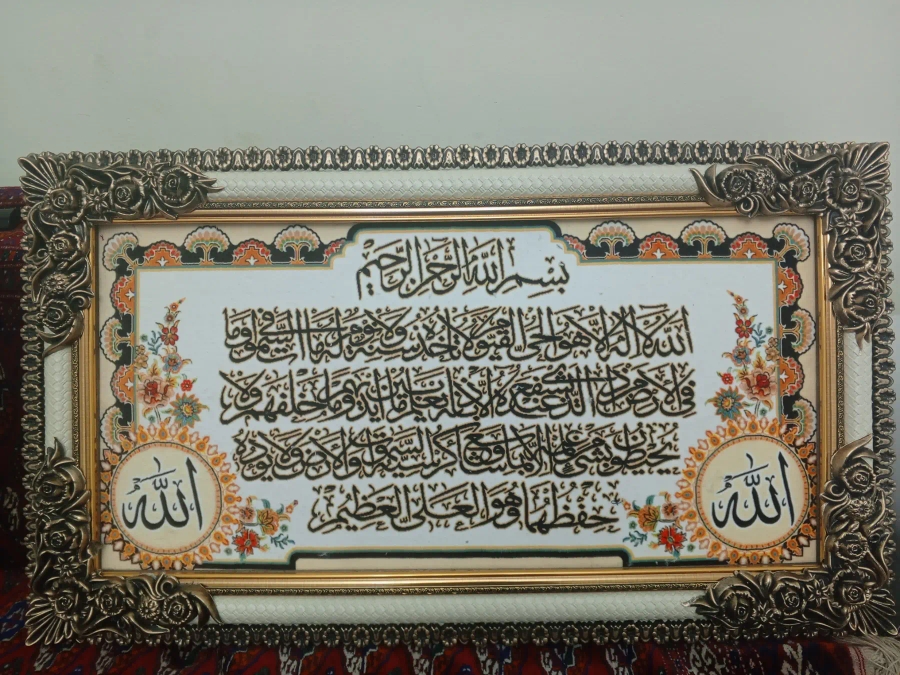 بِسْمِ اللَّهِ الرَّحْمَنِ الرَّحِيمِ
اللَّهُ لَا إِلَهَ إِلَّا هُوَ الْحَيُّ الْقَيُّومُ لَا تَأْخُذُهُ سِنَةٌ وَلَا نَوْمٌ لَهُ مَا فِي السَّمَاوَاتِ وَمَا
فِي الْأَرْضِ مَنْ ذَا الَّذِي يَشْفَعُ عِنْدَهُ إِلَّا بِإِذْنِهِ يَعْلَمُ مَا بَيْنَ أَيْدِيهِمْ وَمَا خَلْفَهُمْ وَلَا
يُحِيطُونَ بِشَيْءٍ مِنْ عِلْمِهِ إِلَّا بِمَا شَاءَ وَسِعَ كُرْسِيُّهُ السَّمَاوَاتِ وَالْأَرْضَ وَلَا يَئُودُهُ
حِفْظُهُمَا وَهُوَ الْعَلِيُّ الْعَظِيمُ
اللَّهُ
اللَّهُ